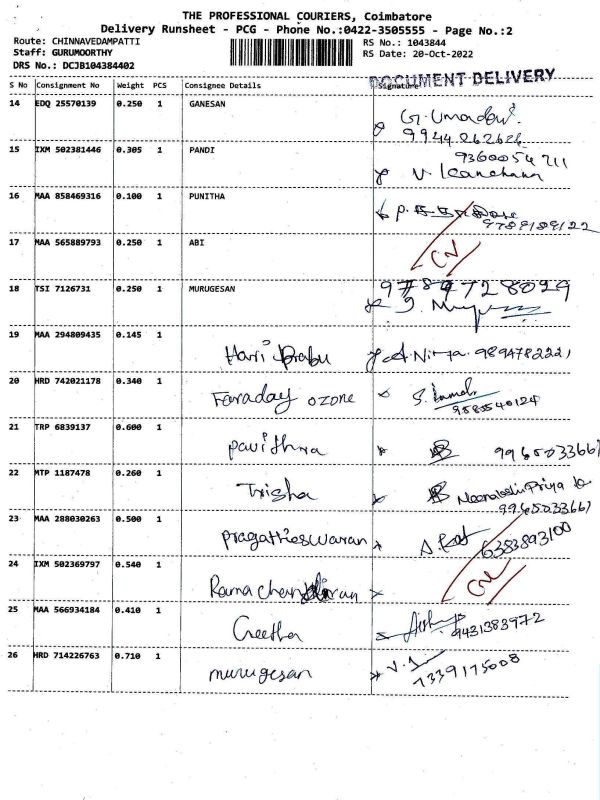 THE PROFESSIONAL COURIERS, Coimbatore
Delivery Runsheet - PCG - Phone No.:0422-3505555 - Page No.:2
Route: CHINNAVEDAMPATTI
RS No.: 1043844
Staff: GURUMOORTHY
RS Date: 20-Oct-2022
DRS No.: DCJB104384402
DOCUMENT DELIVERY
S No Consignment No Weight PCS Consignee Details Signature
14 EDQ 25570139 0.250 1 GANESAN
9944262626
15 IXM 502381446 0.305 1 PANDI
9360054711
V. Kanchana
16 MAA 858469316 0.100 1 PUNITHA
9789189122
17 MAA 565889793 0.250 1 ABI
18 TSI 7126731 0.250 1 MURUGESAN
9789728029
19 MAA 294809435 0.145 1 Hari prabu
9894782221
20 HRD 742021178 0.340 1 Faraday ozone
21 TRP 6839137 0.600 1 pavithra
9965033661
22 MTP 1187478 0.260 1 Trisha
Priya
9965033661
23 MAA 288030263 0.500 1 pragatheeswaran
6383893100
24 IXM 502369797 0.540 1
25 MAA 566934184 0.410 1 Geetha
9431383972
26 HRD 714226763 0.710 1 murugesan
7339175008